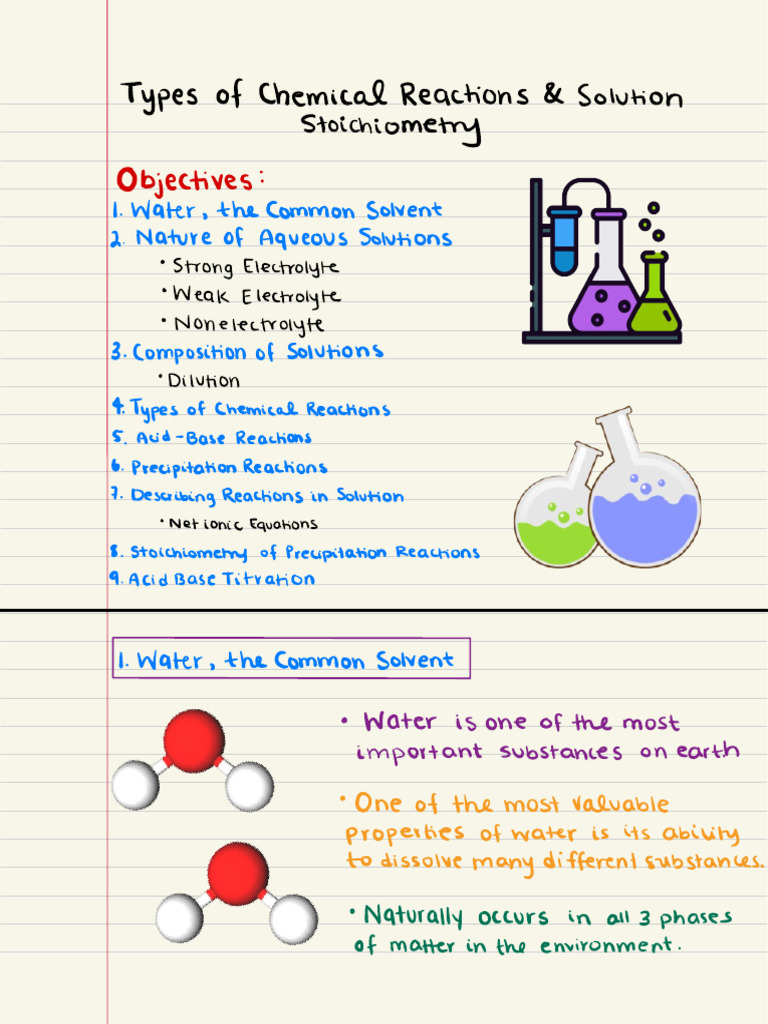 Types of Chemical Reactions & Solution
Stoichiometry
Objectives:
1. Water, the Common Solvent
2. Nature of Aqueous Solutions
• Strong Electrolyte
• Weak Electrolyte
• Nonelectrolyte
3. Composition of Solutions
• Dilution
4. Types of Chemical Reactions
5. Acid-Base Reactions
6. Precipitation Reactions
7. Describing Reactions in Solution
• Net ionic Equations
8. Stoichiometry of Precipitation Reactions
9. Acid Base Titration
1. Water, the Common Solvent
• Water is one of the most
important substances on earth
• One of the most valuable
properties of water is its ability
to dissolve many different substances.
• Naturally occurs in all 3 phases
of matter in the environment.